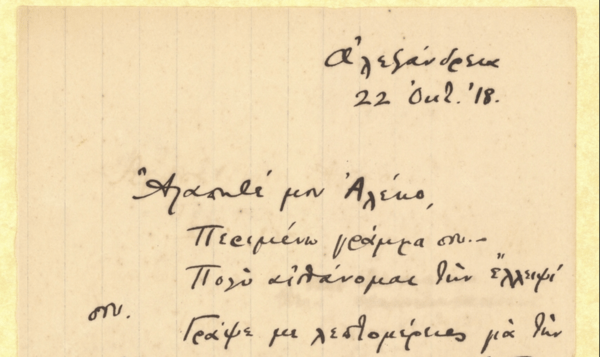 Ἀλεξάνδρεια
22 Ὀκτ. '18.
Ἀγαπητέ μου Ἀλέκο,
Περιμένω γράμμα σου.–
Πολὺ αἰσθάνομαι τὴν ἔλλειψί
σου.
Γράψε με λεπτομέρειες γιὰ τὴν